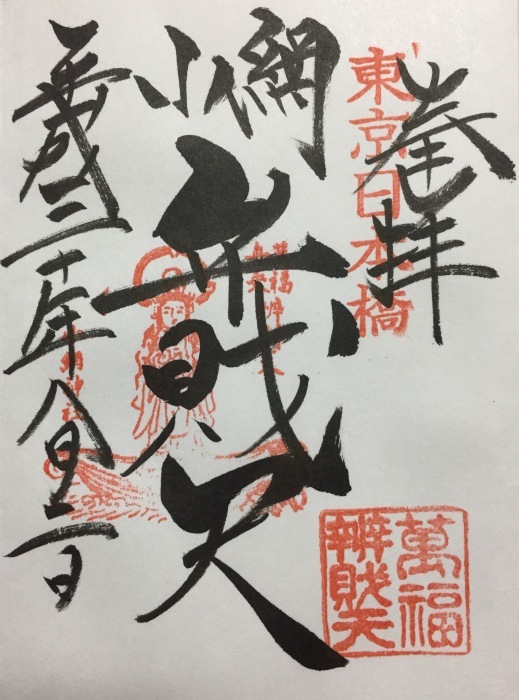 奉拝
東京日本橋
小網
弁財天
萬福
辨財天
平成三十年八月